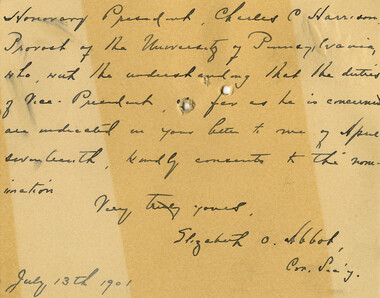 Honorary President, Charles C Harrison
Provost of the University of Pennsylvania,
who, with the understanding that the duties
of Vice-President, so far as he is concerned
are indicated in your letter to me of April
seventeenth, kindly consents to the nom-
ination
Very truly yours,
Elizabeth O. Abbot,
Cor. Sec'y.
July 13th 1901